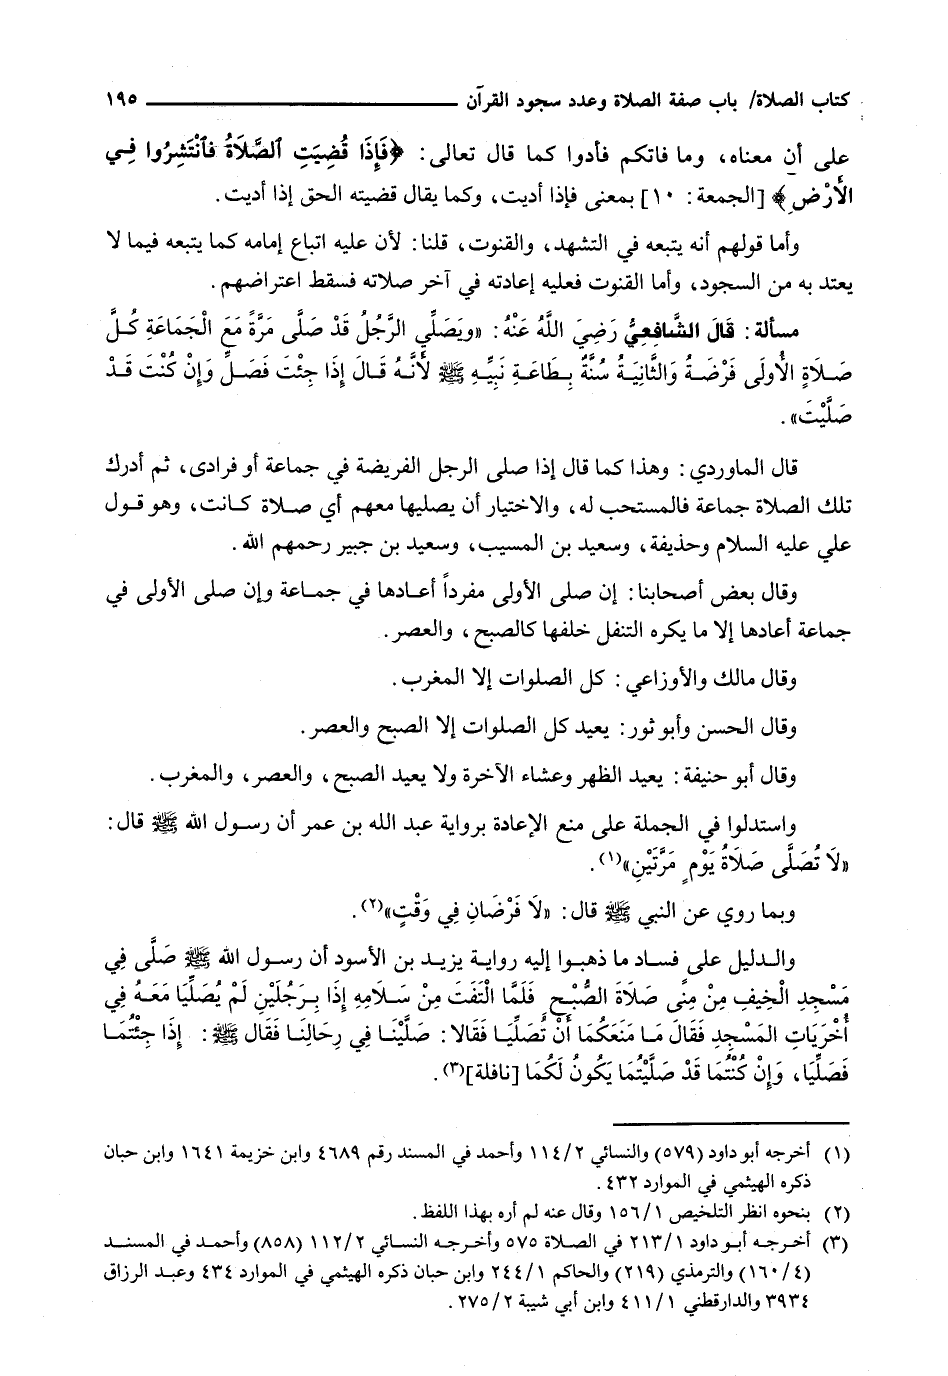 كتاب الصلاة/ باب صفة الصلاة وعدد سجود القرآن ١٩٥
على أن معناه، وما فاتكم فأدوا كما قال تعالى: ﴿فَإِذَا قُضِيَتِ ٱلصَّلَاةُ فَٱنْتَشِرُوا فِي
الْأَرْضِ﴾ [الجمعة: ١٠] بمعنى فإذا أديت، وكما يقال قضيته الحق إذا أديت.
وأما قولهم أنه يتبعه في التشهد، والقنوت، قلنا: لأن عليه اتباع إمامه كما يتبعه فيما لا
يعتد به من السجود، وأما القنوت فعليه إعادته في آخر صلاته فسقط اعتراضهم.
مسألة: قَالَ الشَّافِعِيُّ رَضِيَ اللَّهُ عَنْهُ: «ويَصَلِّي الرَّجُلُ قَدْ صَلَّى مَرَّةً مَعَ الْجَمَاعَةِ كُلَّ
صَلَاةٍ الْأُولَى فَرْضَةُ وَالثَّانِيَةُ سُنَّةٌ بِطَاعَةِ نَبِيِّهِ ﷺ لأَنَّهُ قَالَ إِذَا جِئْتَ فَصَلِّ وَإِنْ كُنْتَ قَدْ
صَلَّيْتَ».
قال الماوردي: وهذا كما قال إذا صلى الرجل الفريضة في جماعة أو فرادى، ثم أدرك
تلك الصلاة جماعة فالمستحب له، والاختيار أن يصليها معهم أي صلاة كانت، وهو قول
علي عليه السلام وحذيفة، وسعيد بن المسيب، وسعيد بن جبير رحمهم الله.
وقال بعض أصحابنا: إن صلى الأولى مفرداً أعادها في جماعة وإن صلى الأولى في
جماعة أعادها إلا ما يكره التنفل خلفها كالصبح، والعصر.
وقال مالك والأوزاعي: كل الصلوات إلا المغرب.
وقال الحسن وأبو ثور: يعيد كل الصلوات إلا الصبح والعصر.
وقال أبو حنيفة: يعيد الظهر وعشاء الآخرة ولا يعيد الصبح، والعصر، والمغرب.
واستدلوا في الجملة على منع الإعادة برواية عبد الله بن عمر أن رسول الله ﷺ قال:
«لَا تُصَلَّى صَلَاةُ يَوْمٍ مَرَّتَيْنِ»(١).
وبما روي عن النبي ﷺ قال: «لَا فَرْضَانِ فِي وَقْتٍ»(٢).
والدليل على فساد ما ذهبوا إليه رواية يزيد بن الأسود أن رسول الله ﷺ صَلَّى فِي
مَسْجِدِ الْخِيفِ مِنْ مِنًى صَلَاةَ الصُّبْحِ فَلَمَّا الْتَفَتَ مِنْ سَلَامِهِ إِذَا بِرَجُلَيْنِ لَمْ يُصَلِّيَا مَعَهُ فِي
أُخْرَيَاتِ المَسْجِدِ فَقَالَ مَا مَنَعَكُمَا أَنْ تُصَلِّيَا فَقَالا: صَلَّيْنَا فِي رِحَالِنَا فَقَال ﷺ: إِذَا جِئْتُمَا
فَصَلِّيَا، وَإِنْ كُنْتُمَا قَدْ صَلَّيْتُمَا يَكُونُ لَكُمَا [نافلة](٣).
(١) أخرجه أبو داود (٥٧٩) والنسائي ١١٤/٢ وأحمد في المسند رقم ٤٦٨٩ وابن خزيمة ١٦٤١ وابن حبان
ذكره الهيثمي في الموارد ٤٣٢.
(٢) بنحوه انظر التلخيص ١٥٦/١ وقال عنه لم أره بهذا اللفظ.
(٣) أخرجه أبو داود ٢١٣/١ في الصلاة ٥٧٥ وأخرجه النسائي ١١٢/٢ (٨٥٨) وأحمد في المسند
(١٦٠/٤) والترمذي (٢١٩) والحاكم ٢٤٤/١ وابن حبان ذكره الهيثمي في الموارد ٤٣٤ وعبد الرزاق
٣٩٣٤ والدارقطني ٤١١/١ وابن أبي شيبة ٢٧٥/٢.